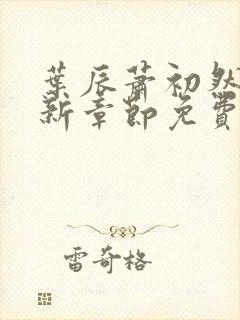 葉辰蕭初然
新章節免費
雷奇格